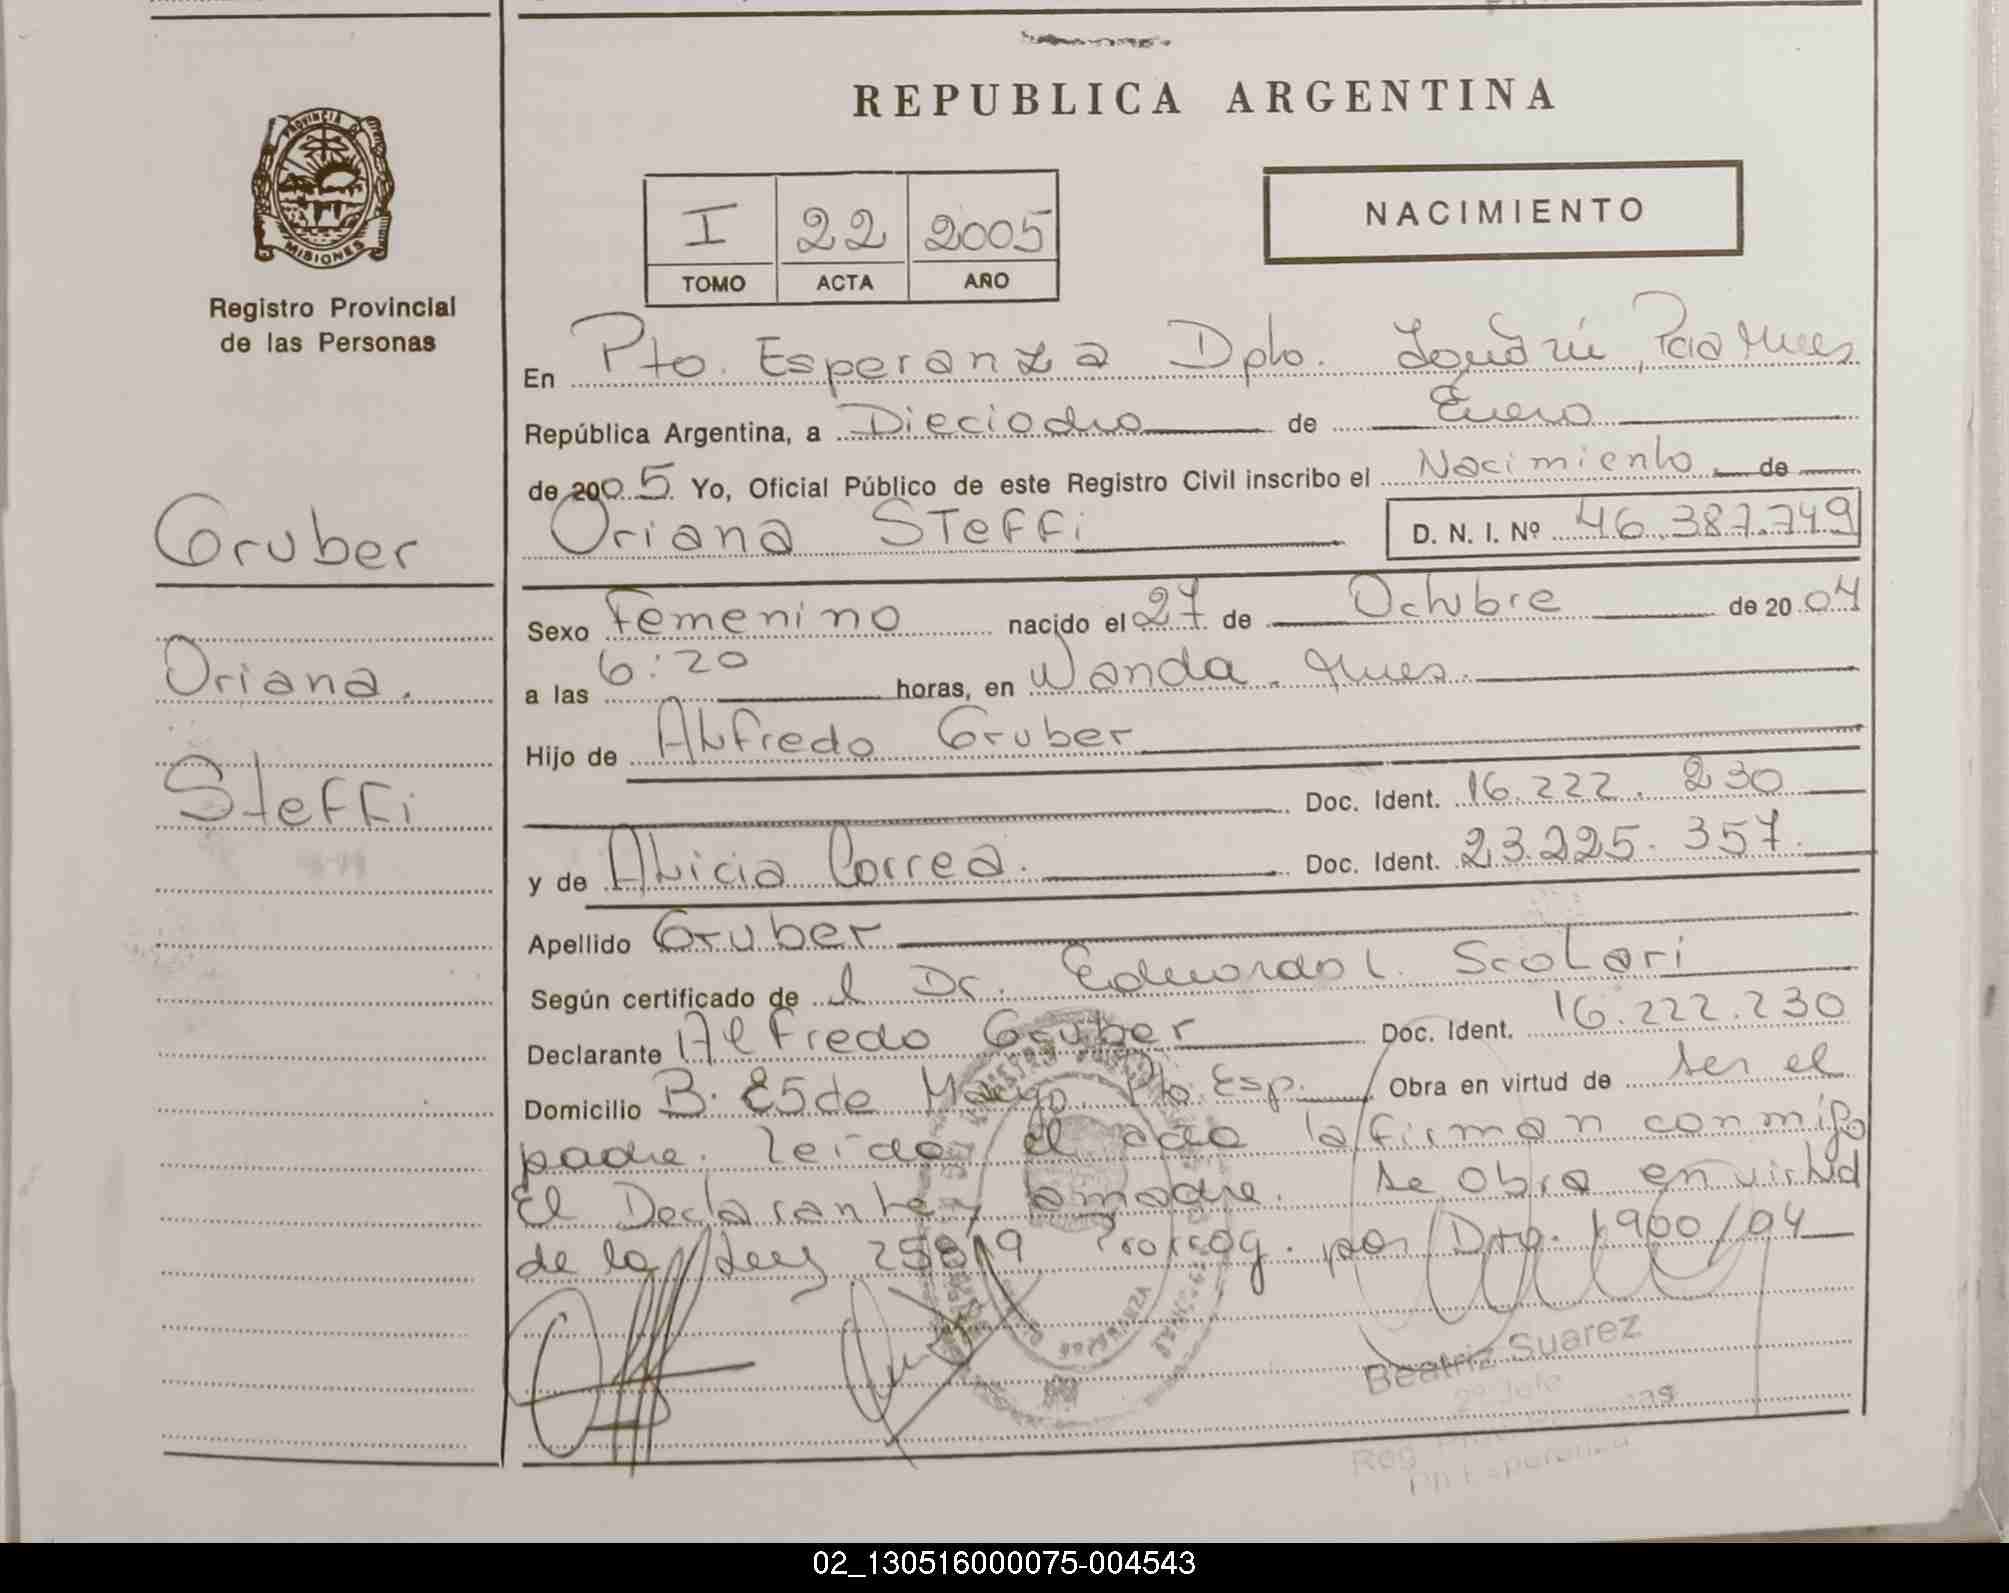 REPUBLICA ARGENTINA
PROVINCIA DE
MISIONES
Registro Provincial
de las Personas
I 22 2005
TOMO ACTA AÑO
NACIMIENTO
En Pto. Esperanza Dpto. Iguazú, Pcia Mnes
República Argentina, a Dieciocho de Enero
de 2005 Yo, Oficial Público de este Registro Civil inscribo el Nacimiento de
Oriana Steffi D. N. I. Nº 46.387.749
Gruber
Oriana.
Steffi
Sexo Femenino nacido el 27 de Octubre de 2004
a las 6:20 horas, en Wanda. Mnes.
Hijo de Alfredo Gruber
Doc. Ident. 16.222.230
y de Alicia Correa. Doc. Ident. 23.225.357.
Apellido Gruber
Según certificado de el Dr. Eduardo L. Scolari
Declarante Alfredo Gruber Doc. Ident. 16.222.230
Domicilio B. 25 de Mayo. Pto. Esp. Obra en virtud de ser el
padre. leída el acta la firman conmigo
El Declarante y la madre. Se obra en virtud
de la Ley 25819 Prorrog. por Dto. 1900/04
Beatriz Suarez
2º Jefe
Reg.
Pto Esperanza
02_130516000075-004543